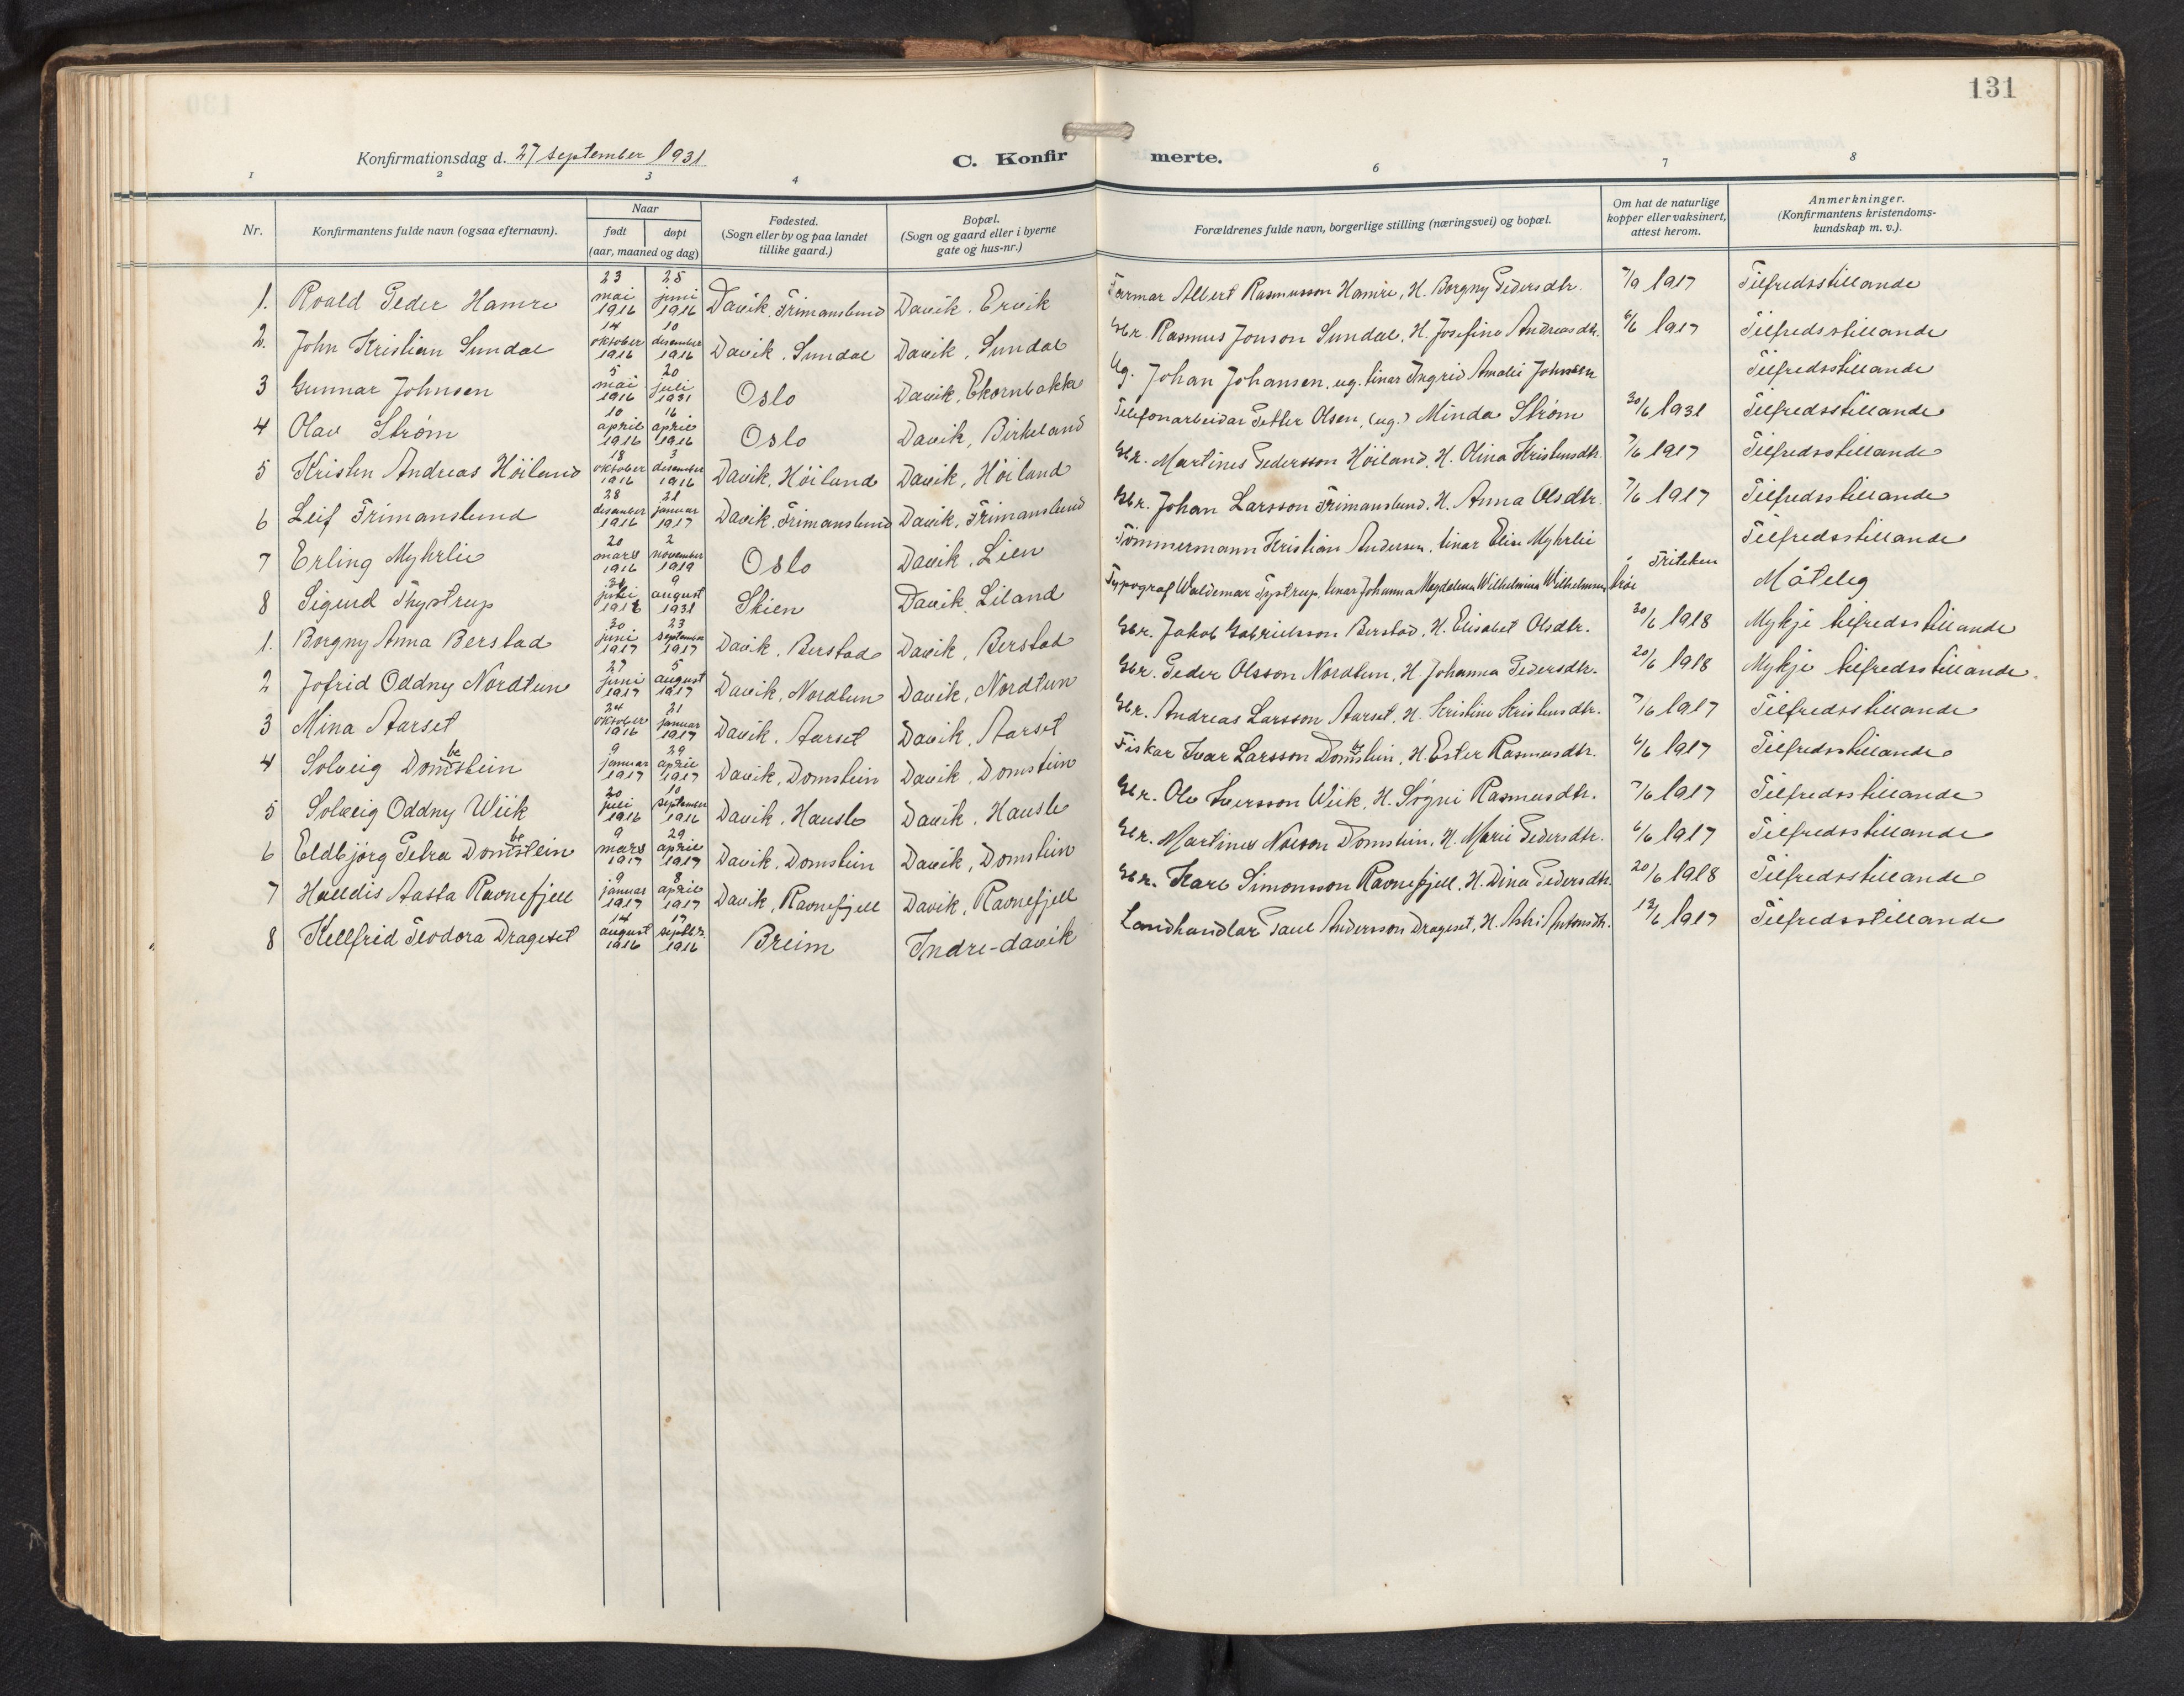 131
Konfirmationsdag d. 27 september 1931
C. Konfirmerte.
1 2 3 4 6 7 8
Nr.
Konfirmantens fulde navn (ogsaa efternavn).
Naar
født døpt
(aar, maaned og dag)
Fødested.
(Sogn eller by og paa landet
tillike gaard.)
Bopæl.
(Sogn og gaard eller i byerne
gate og hus-nr.)
Forældrenes fulde navn, borgerlige stilling (næringsvei) og bopæl.
Om hat de naturlige
kopper eller vaksinert,
attest herom.
Anmerkninger.
(Konfirmantens kristendoms-
kundskap m. v.).
1. Roald Peder Hamre 23 mai 1916 25 juni 1916 Davik, Frimanslund Davik, Ervik Farmar Albert Rasmusson Hamre, H. Borgny Pedersdtr. 7/9 1917 Tilfredsstillande
2. John Kristian Sundal 14 oktober 1916 10 desember 1916 Davik, Sundal Davik, Sundal Gbr. Rasmus Jonson Sundal, H. Josefine Andreasdtr. 6/6 1917 Tilfredsstillande
3 Gunnar Johnsen 5 mai 1916 20 juli 1931 Oslo Davik, Ekornbakke Ug. Johan Johansen, ug. tenar Ingrid Amalie Johnsen Tilfredsstillande
4 Olav Strøm 10 april 1916 16 april 1916 Oslo Davik, Birkeland Telefonarbeidar Petter Olsen, (ug.) Minda Strøm 30/6 1931 Tilfredsstillande
5 Kristen Andreas Höiland 18 oktober 1916 3 desember 1916 Davik, Höiland Davik, Höiland Gbr. Martines Pedersson Höiland, H. Olina Kristensdtr. 7/6 1917 Tilfredsstillande
6 Leif Frimanslund 28 desember 1916 21 januar 1917 Davik, Frimanslund Davik, Frimanslund Gbr. Johan Larsson Frimanslund, H. Anna Olsdtr. 7/6 1917 Tilfredsstillande
7 Erling Myhrlie 20 mars 1916 2 november 1919 Oslo Davik, Lien Tömmermann Kristian Andersen, tenar Elise Myhrlie Tilfredsstillande
8 Sigurd Thystrup juli 9 august 1931 Skien Davik, Liland Typograf Waldemar Tystrup, tenar Johanna Magdalena Wilhelmina Wilhelmsen Friteken Måteleg
1. Borgny Anna Berstad 30 juni 1917 23 september 1917 Davik, Berstad Davik, Berstad Gbr. Jakob Gabrielsson Berstad, H. Elisabet Olsdtr. 30/6 1918 Mykje tilfredsstillande
2 Jofrid Oddny Nordtun 27 juni 1917 5 august 1917 Davik, Nordtun Davik, Nordtun Gbr. Peder Olsson Nordtun, H. Johanna Pedersdtr. 20/6 1918 Mykje tilfredsstillande.
3 Mina Aarset 24 oktober 1916 21 januar 1917 Davik, Aarset Davik, Aarset Gbr. Andreas Larsson Aarset, H. Kristine Kristensdtr. 7/6 1917 Tilfredsstillande
4 Solveig Domstein 9 januar 1917 29 april 1917 Davik, Domstein Davik, Domstein Fiskar Ivar Larsson Domstein, H. Ester Rasmusdtr. 6/6 1917 Tilfredsstillande
5 Solveig Oddny Wiik 20 juli 1916 10 september 1916 Davik, Hausle Davik, Hausle Gbr. Ole Iversson Wiik, H. Sögni Rasmusdtr. 7/6 1917 Tilfredsstillande
6 Eldbjörg Petra Domstein 9 mars 1917 29 april 1917 Davik, Domstein Davik, Domstein Gbr. Martines Domstein, H. Marie Pedersdtr. 6/6 1917 Tilfredsstillande
7 Halldis Aasta Ravnefjell 9 januar 1917 8 april 1917 Davik, Ravnefjell Davik, Ravnefjell Gbr. Karl Simonsson Ravnefjell, H. Dina Pedersdtr. 20/6 1918 Tilfredsstillande
8 Kellfrid Teodora Drageset 14 august 1916 17 septbr. 1916 Breim Indre-davik Landhandlar Paul Andersson Drageset, H. Antonsdtr. 12/6 1917 Tilfredsstillande